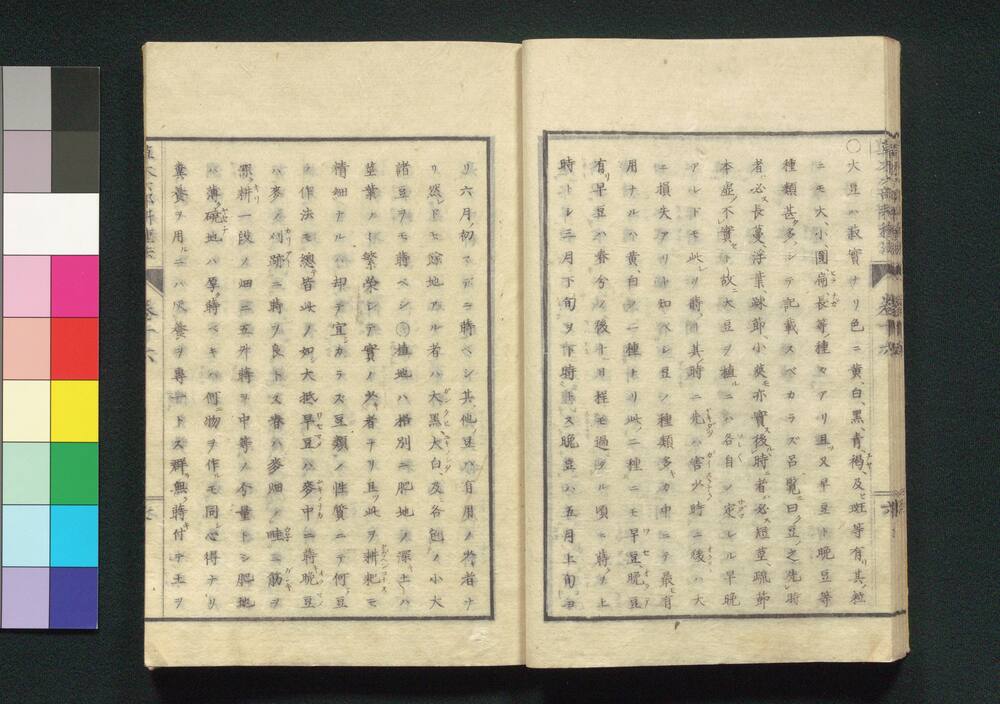 ○大豆ハ菽實ナリ色ニ黄、白、黑、青、褐、及ヒ斑等有リ其粒
ニモ大、小、圓、扁、長等種々アリ且ツ又早豆ト晩豆等
種類甚タ多シテ記載スベカラズ呂覽ニ曰ク豆之先レ時
者ハ必ス長蔓、浮葉、疎節、小莢モ亦實ス後ルル時ニ者ハ必ス短莖、疏節
本虚ク不實セト故ニ大豆ヲ植ルニハ各自ノ定レル早晩
アレドモ此ヨリ蒔ク其時ニ先レハ害少ク時ニ後ハ大
ニ損失アリト知ベシ豆ノ種類多キカ中ニテ最モ有
用ナルハ黄、白ノ二種トリ此ノ二種ニモ早豆晩豆
有リ早豆ハ春分ノ後十日程モ過タル頃ニ蒔ヲ上
時トシ三月下旬ヲ下時トス晩豆ハ五月上旬ヨ
リ六月初マデニ蒔ベシ其他豆ハ有用ノ者ナ
リ然レドモ餘地アル者ハ大黑大白及各色ノ小大
諸豆ヲモ蒔ベシ植地ハ格別ニ肥地ノ深キ土ハ
莖葉ノミ繁榮シテ實ノ者ナリ且ツ此ヲ耕耙モ
精細ナルハ却テ宜カラス豆類ノ性質ニテ何豆
ノ作法モ總皆此ノ如シ大抵早豆ハ麥中ニ蒔晩豆
ハ麥ノ刈跡ニ蒔ヲ良トス春ハ麥畑ノ畦ニ筋ヲ
深ク耕一段ノ畑ニ五升蒔ヲ中等ノ分量トシ肥地
ハ薄ク磽地ハ厚ク蒔ベキハ何物ヲ作ルモ同シ心得ナリ
糞養ヲ用ルニハ灰養ヲ專一トス群無ク蒔付テ土ヲ
卷十六